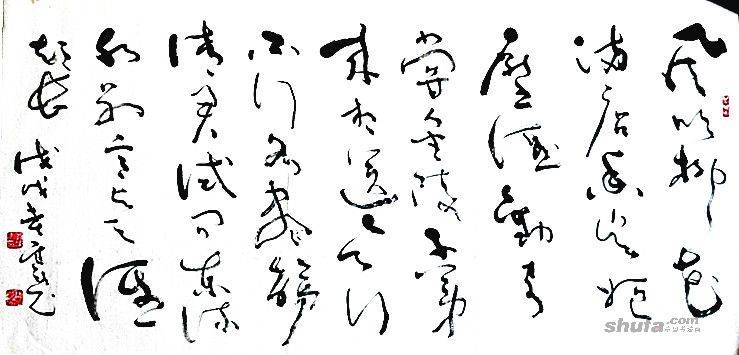 风吹柳花
满店香吴姬
压酒劝客
尝金陵子弟
来相送欲行
不行各尽觞
请君试问东流
水别意与之谁
短长
戊戌
shufa.com